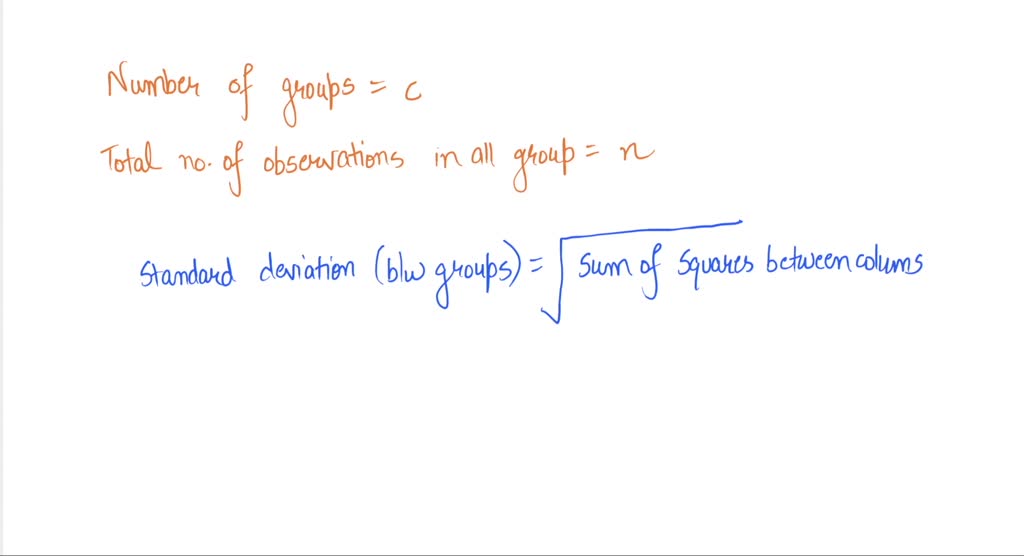 Number of groups = c
Total no. of observations in all group = n
Standard deviation (b/w groups) = √Sum of Squares between colums